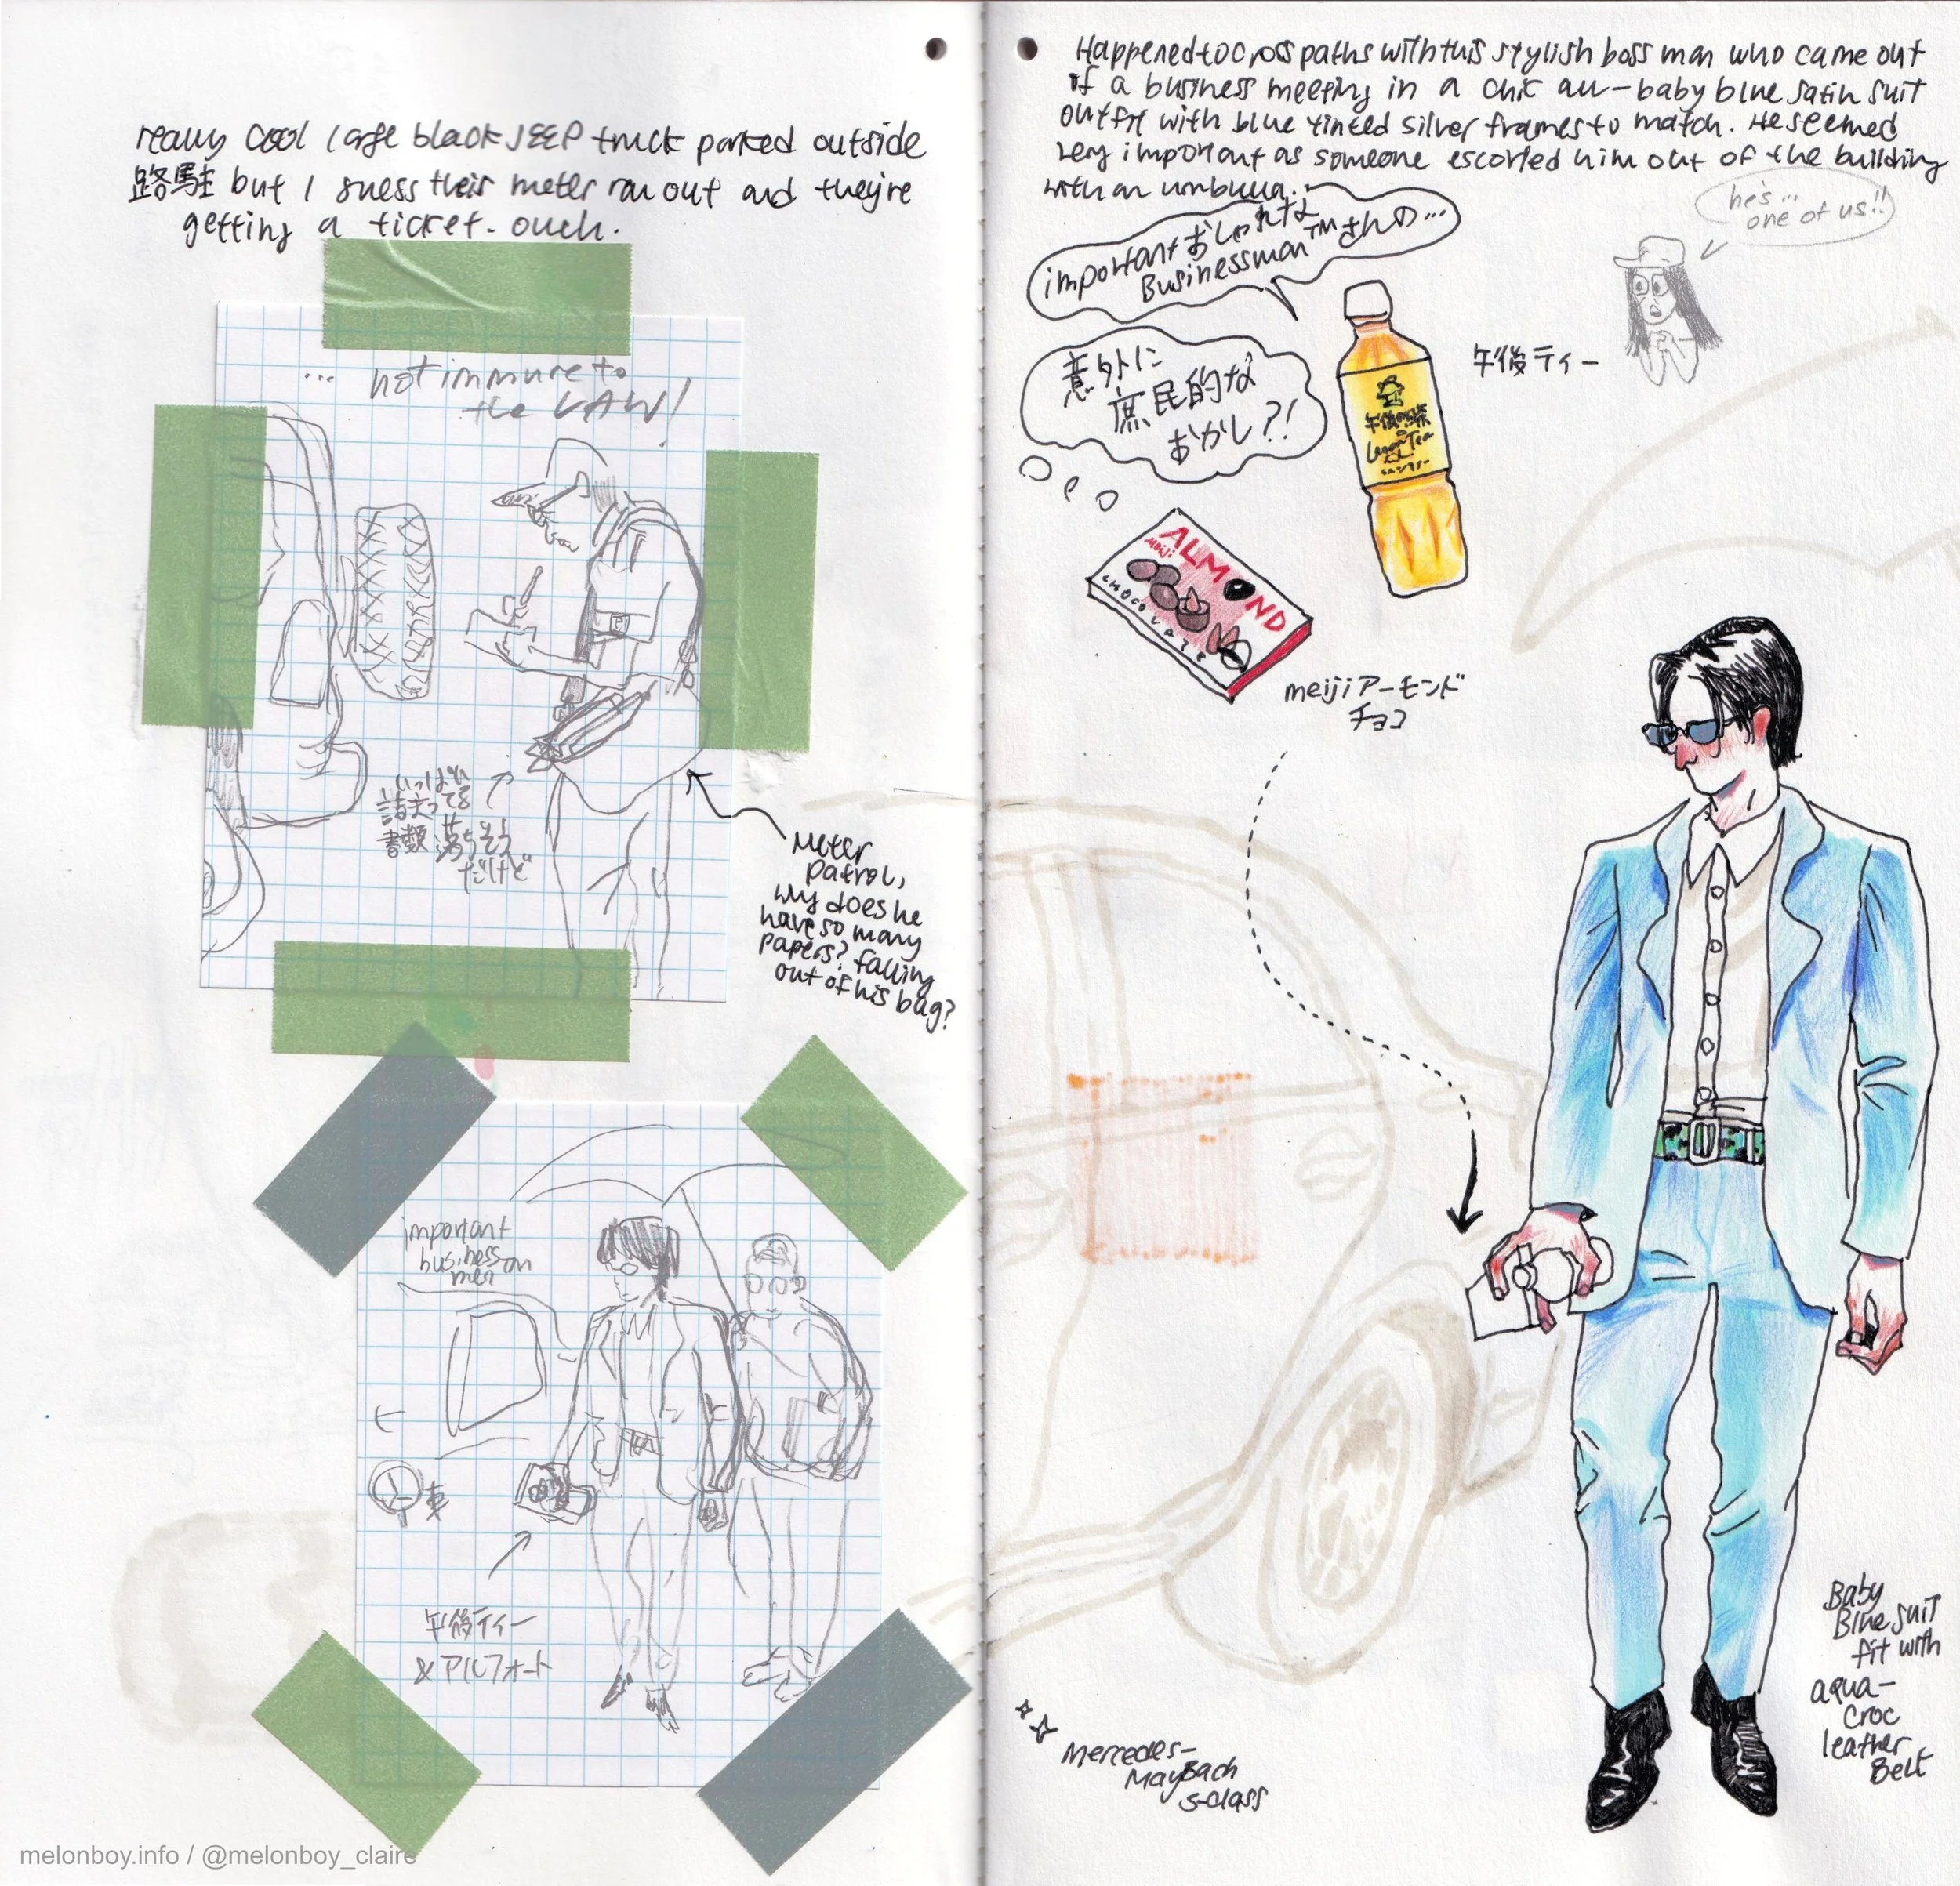 really cool large black JEEP truck parked outside
路駐 but I guess their meter ran out and they're
getting a ticket. ouch.
... not immune to
the LAW!
いっぱい
詰まってる
書類 落ちそう
だけど
Meter
patrol,
why does he
have so many
papers? falling
out of his bag?
important
business
men
車
午後ティー
&アルフォート
melonboy.info / @melonboy_claire
Happened to cross paths with this stylish boss man who came out
of a business meeting in a chic all-baby blue satin suit
outfit with blue tinted silver frames to match. He seemed
very important as someone escorted him out of the building
with an umbrella.
he's...
one of us!!
important おしゃれな
Businessman™さんの...
意外に
庶民的な
おかし?!
午後ティー
午後の紅茶
Lemon Tea
meiji
ALMOND
CHOCOLATE
meiji アーモンド
チョコ
Baby
Blue suit
fit with
aqua-
croc
leather
Belt
Mercedes-
Maybach
S-class